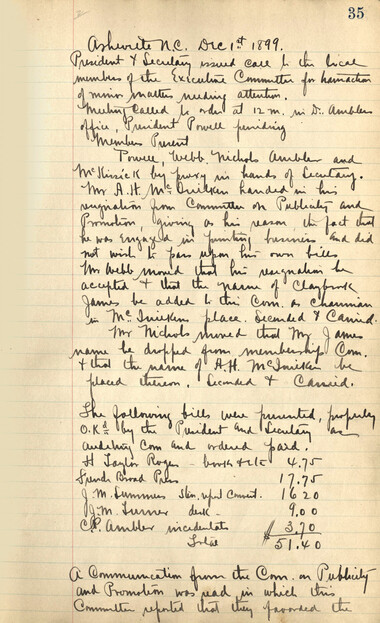 35
Asheville N.C. Dec 1st 1899.
President & Secretary issued call to the local
members of the Executive Committee for transaction
of minor matters needing attention.
Meeting called to order at 12 m. in Dr. Amblers
office, President Powell presiding
Members Present
Powell, Webb, Nichols Ambler and
McKissick by proxy in hands of Secretary.
Mr A.H. McQuilkin handed in his
resignation from Committee on Publicity and
Promotion, giving as his reason, the fact that
he was engaged in printing business and did
not wish to pass upon his own bills
Mr Webb moved that his resignation be
accepted & that the name of Claybrook
James be added to this Com. as chairman
in McQuilkin place. Seconded & Carried.
Mr Nichols moved that Mr James
name be dropped from membership Com.
& that the name of A.H. McQuilkin be
placed thereon. Seconded & Carried.
The following bills were presented, properly
O.K.d by the President and Secretary as
auditing Com and ordered paid.
H Taylor Rogers - books &c 4.75
French Broad Press 17.75
J.M. Summers Sten. 16 20
J.M. desk - 9.00
C.P. Ambler incidentals 3.70
Total $51.40
A Communication from the Com. on Publicity
and Promotion was read in which this
Committee reported that they favored the